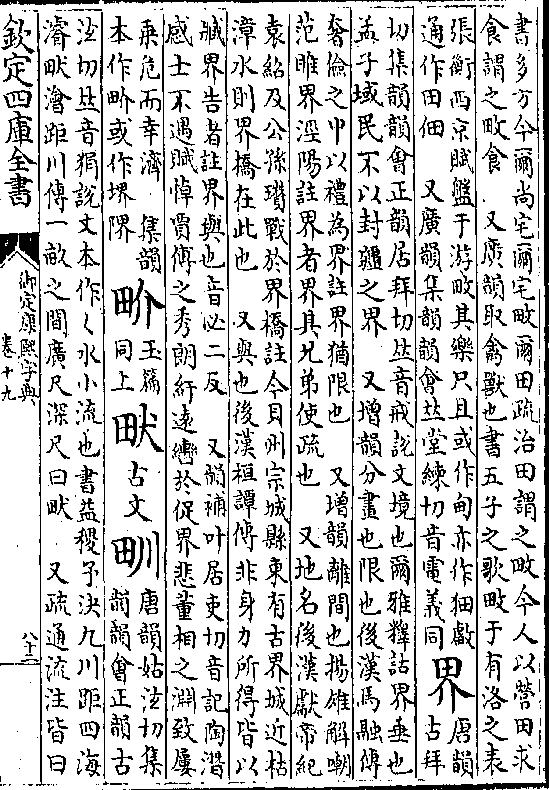 書多方今爾尚宅爾宅畋爾田疏治田謂之畋今人以營田求
食謂之畋食　又廣韻取禽獸也書五子之歌畋于有洛之表
張衡西京賦盤于游畋其樂只且或作甸亦作㽃䵤
通作田佃　又廣韻集韻韻會𠀤堂練切音電義同
界
唐韻
古拜
切集韻韻會正韻居拜切𠀤音戒說文境也爾雅釋詁界垂也
孟子域民不以封疆之界　又增韻分畫也限也後漢馬融傳
奢儉之中以禮為界註界猶限也　又增韻離間也揚雄解嘲
范雎界涇陽註界者界其兄弟使疏也　又地名後漢獻帝紀
袁紹及公孫瓚戰於界橋註今貝州宗城縣東有古界城近枯
漳水則界橋在此也　又與也後漢桓譚傳非身力所得皆以
臧界告者註界與也音必二反　又韻補叶居吏切音記陶潛
感士不遇賦悼賈傅之秀朗紆遠轡於促界悲董相之淵致屢
乗危而幸濟　集韻
本作畍或作堺㝏
畍
玉篇
同上
畎
古文
甽
唐韻姑泫切集
韻韻會正韻古
泫切𠀤音狷說文本作𡿨水小流也書益稷予決九川距四海
濬畎澮距川傳一畝之間廣尺深尺曰畎　又疏通流注皆曰
欽定四庫全書
御定康熙字典
卷十九
八十三